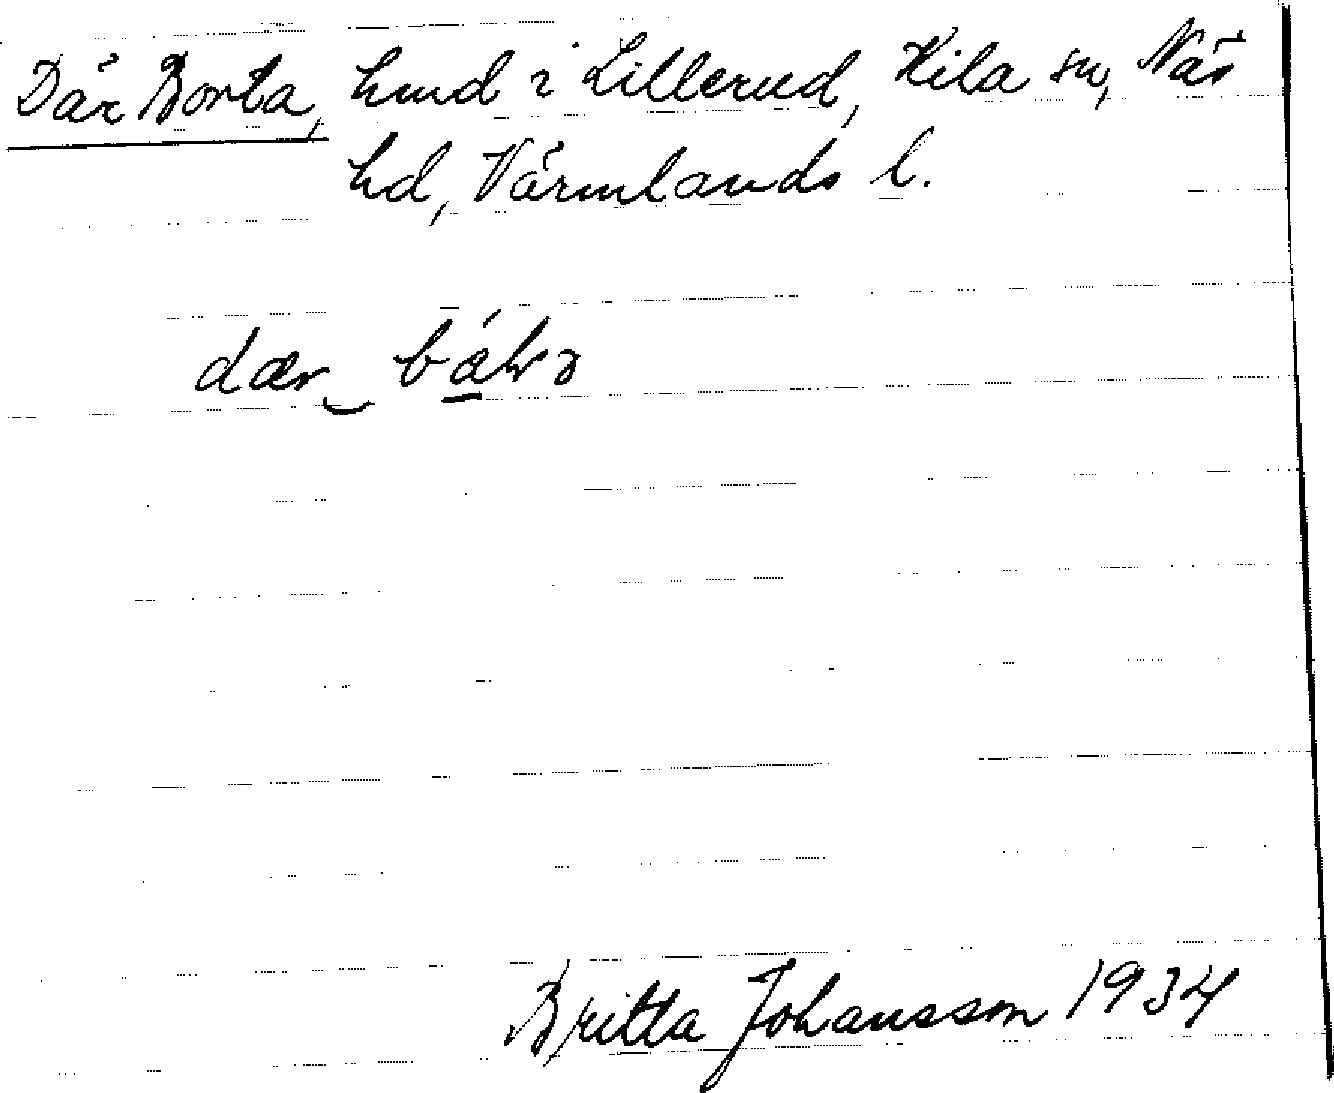 Där Borta, hmd i Lillerud, Kila sn, Näs
hd, Värmlands l.
dær
Britta Johansson 1934